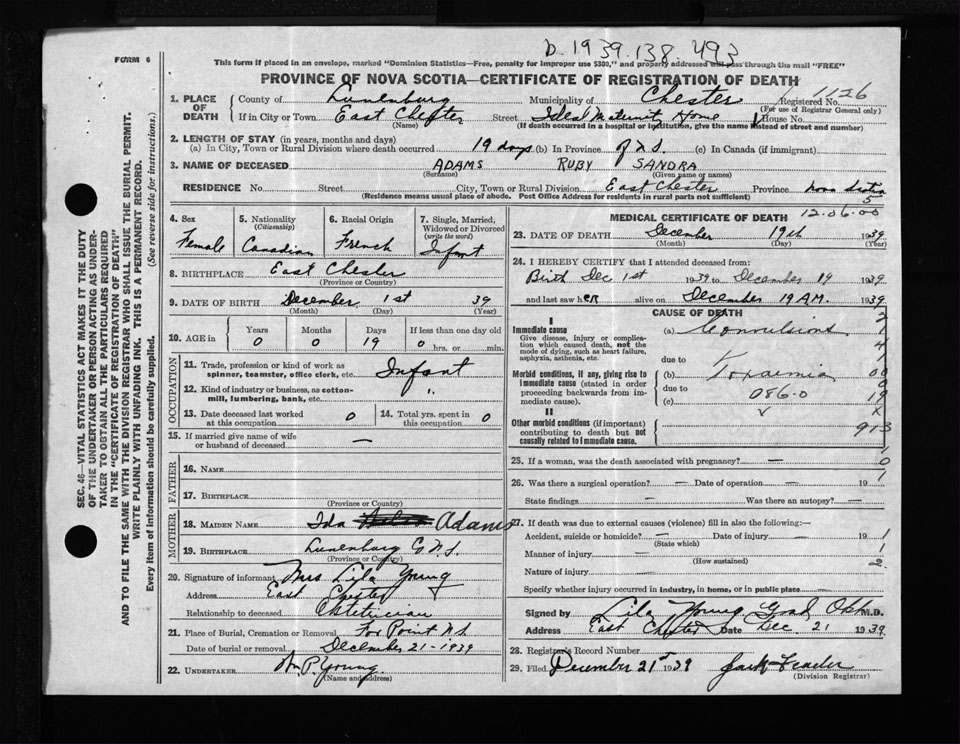 D. 1939.138.493
FORM 6
This form if placed in an envelope, marked "Dominion Statistics—Free, penalty for improper use $300," and properly addressed will pass through the mail "FREE"
PROVINCE OF NOVA SCOTIA—CERTIFICATE OF REGISTRATION OF DEATH
1. PLACE OF DEATH
County of Lunenburg Municipality of Chester Registered No. 1126
(For use of Registrar General only)
If in City or Town East Chester Street Ideal Maternity Home House No.
(Name) (If death occurred in a hospital or institution, give the name instead of street and number)
2. LENGTH OF STAY (in years, months and days)
(a) In City, Town or Rural Division where death occurred 19 days (b) In Province of N.S. (c) In Canada (if immigrant)
3. NAME OF DECEASED ADAMS RUBY SANDRA
(Surname) (Given name or names)
RESIDENCE No. Street City, Town or Rural Division East Chester Province Nova Scotia
(Residence means usual place of abode. Post Office Address for residents in rural parts not sufficient) 5
4. Sex
Female
5. Nationality
(Citizenship)
Canadian
6. Racial Origin
French
7. Single, Married, Widowed or Divorced
(write the word)
Infant
8. BIRTHPLACE East Chester
(Province or Country)
9. DATE OF BIRTH December 1st 39
(Month) (Day) (Year)
10. AGE in
Years Months Days If less than one day old
0 0 19 0 hrs. or min.
OCCUPATION
11. Trade, profession or kind of work as spinner, teamster, office clerk, etc. Infant
12. Kind of industry or business, as cotton-mill, lumbering, bank, etc. "
13. Date deceased last worked at this occupation 0
14. Total yrs. spent in this occupation 0
15. If married give name of wife or husband of deceased —
FATHER
16. NAME
17. BIRTHPLACE
(Province or Country)
MOTHER
18. MAIDEN NAME Ida Adams
19. BIRTHPLACE Lunenburg Co N.S.
(Province or Country)
20. Signature of informant Mrs Lila Young
Address East Chester
Relationship to deceased Obstetrician
21. Place of Burial, Cremation or Removal Fox Point N.S.
Date of burial or removal December 21-1939
22. UNDERTAKER Wm P. Young
(Name and address)
MEDICAL CERTIFICATE OF DEATH 12.06.00
23. DATE OF DEATH December 19th 1939
(Month) (Day) (Year)
24. I HEREBY CERTIFY that I attended deceased from:
Birth Dec 1st 1939 to December 19 1939
and last saw her alive on December 19 A.M. 1939
CAUSE OF DEATH
I
Immediate cause (a) Convulsions
Give disease, injury or complication which caused death, not the mode of dying, such as heart failure, asphyxia, asthenia, etc.
due to
Morbid conditions, if any, giving rise to immediate cause (stated in order proceeding backwards from immediate cause).
(b) Toxaemia
due to
(c) 086.0
II
Other morbid conditions (if important) contributing to death but not causally related to immediate cause.
2
1
4
1
00
0
19
X
913
1
0
1
25. If a woman, was the death associated with pregnancy? —
26. Was there a surgical operation? — Date of operation — 19
State findings — Was there an autopsy? —
27. If death was due to external causes (violence) fill in also the following:—
Accident, suicide or homicide? — Date of injury — 19
(State which)
Manner of injury —
(How sustained)
Nature of injury —
1
1
2
Specify whether injury occurred in industry, in home, or in public place —
Signed by Lila Young Grad M.D.
Address East Chester Date Dec. 21 1939
28. Registrar's Record Number
29. Filed December 21st 1939
(Division Registrar)
SEC. 46—VITAL STATISTICS ACT MAKES IT THE DUTY
OF THE UNDERTAKER OR PERSON ACTING AS UNDER-
TAKER TO OBTAIN ALL THE PARTICULARS REQUIRED
IN THE "CERTIFICATE OF REGISTRATION OF DEATH"
AND TO FILE THE SAME WITH THE DIVISION REGISTRAR WHO SHALL ISSUE THE BURIAL PERMIT.
WRITE PLAINLY WITH UNFADING INK. THIS IS A PERMANENT RECORD.
Every item of information should be carefully supplied. (See reverse side for instructions.)